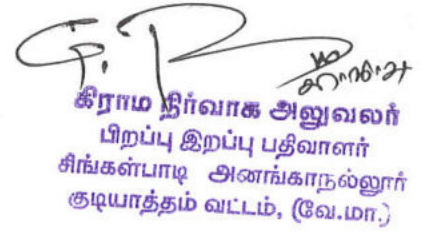 கிராம நிர்வாக அலுவலர்
பிறப்பு இறப்பு பதிவாளர்
சிங்கள்பாடி அனங்காநல்லூர்
குடியாத்தம் வட்டம், (வே.மா.)